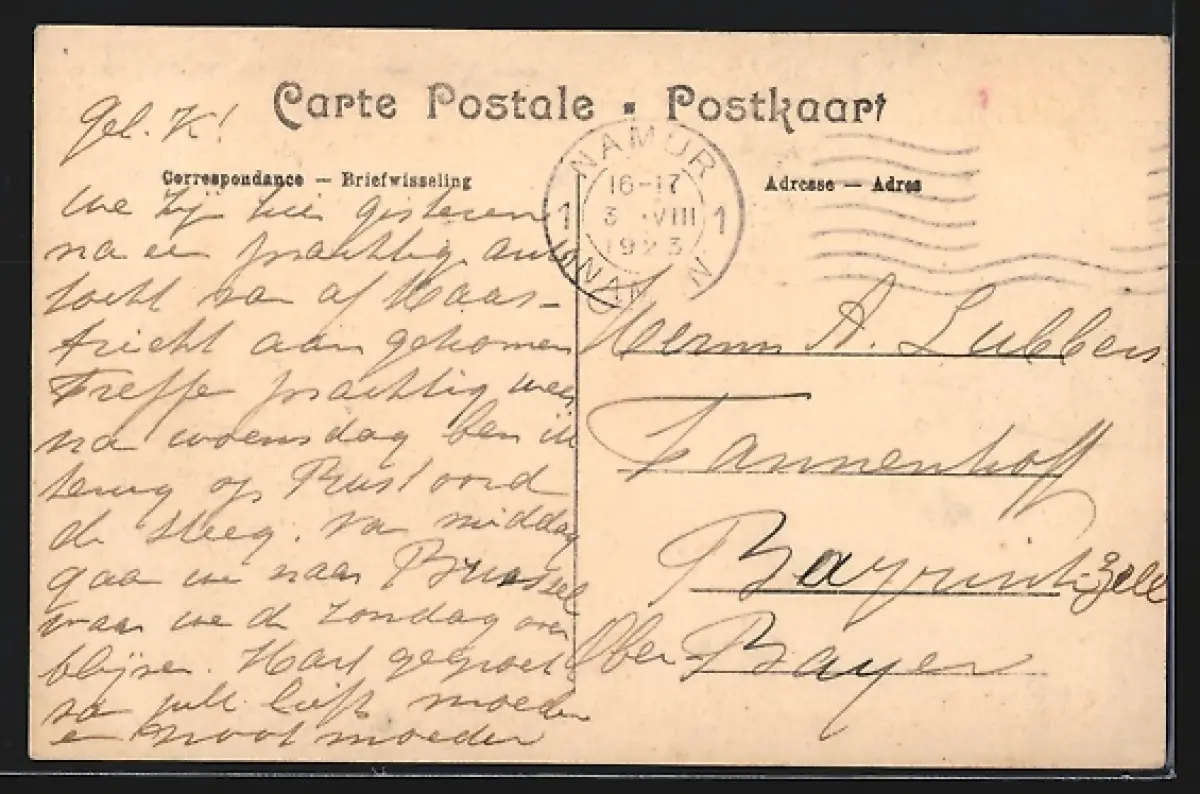 Carte Postale • Postkaart
Correspondance — Briefwisseling
Adresse — Adres
NAMUR
16-17
1 3 VIII 1
1923
NAM N
Gel. K!
we zij hier gisteren
na een prachtig auto
tocht van af Maas-
tricht aan gekomen
Treffe prachtig weer
na woensdag ben ik
terug op Rust oord
de Steeg. van middag
gaa we naar Brussel
waar we de Zondag over
blijve. Hart gegroet
van jull. liefh moeder
en Groot moeder
Herrn A. Lubbers
Tannenhoff
Bayrisch-Zell
Ober-Bayern